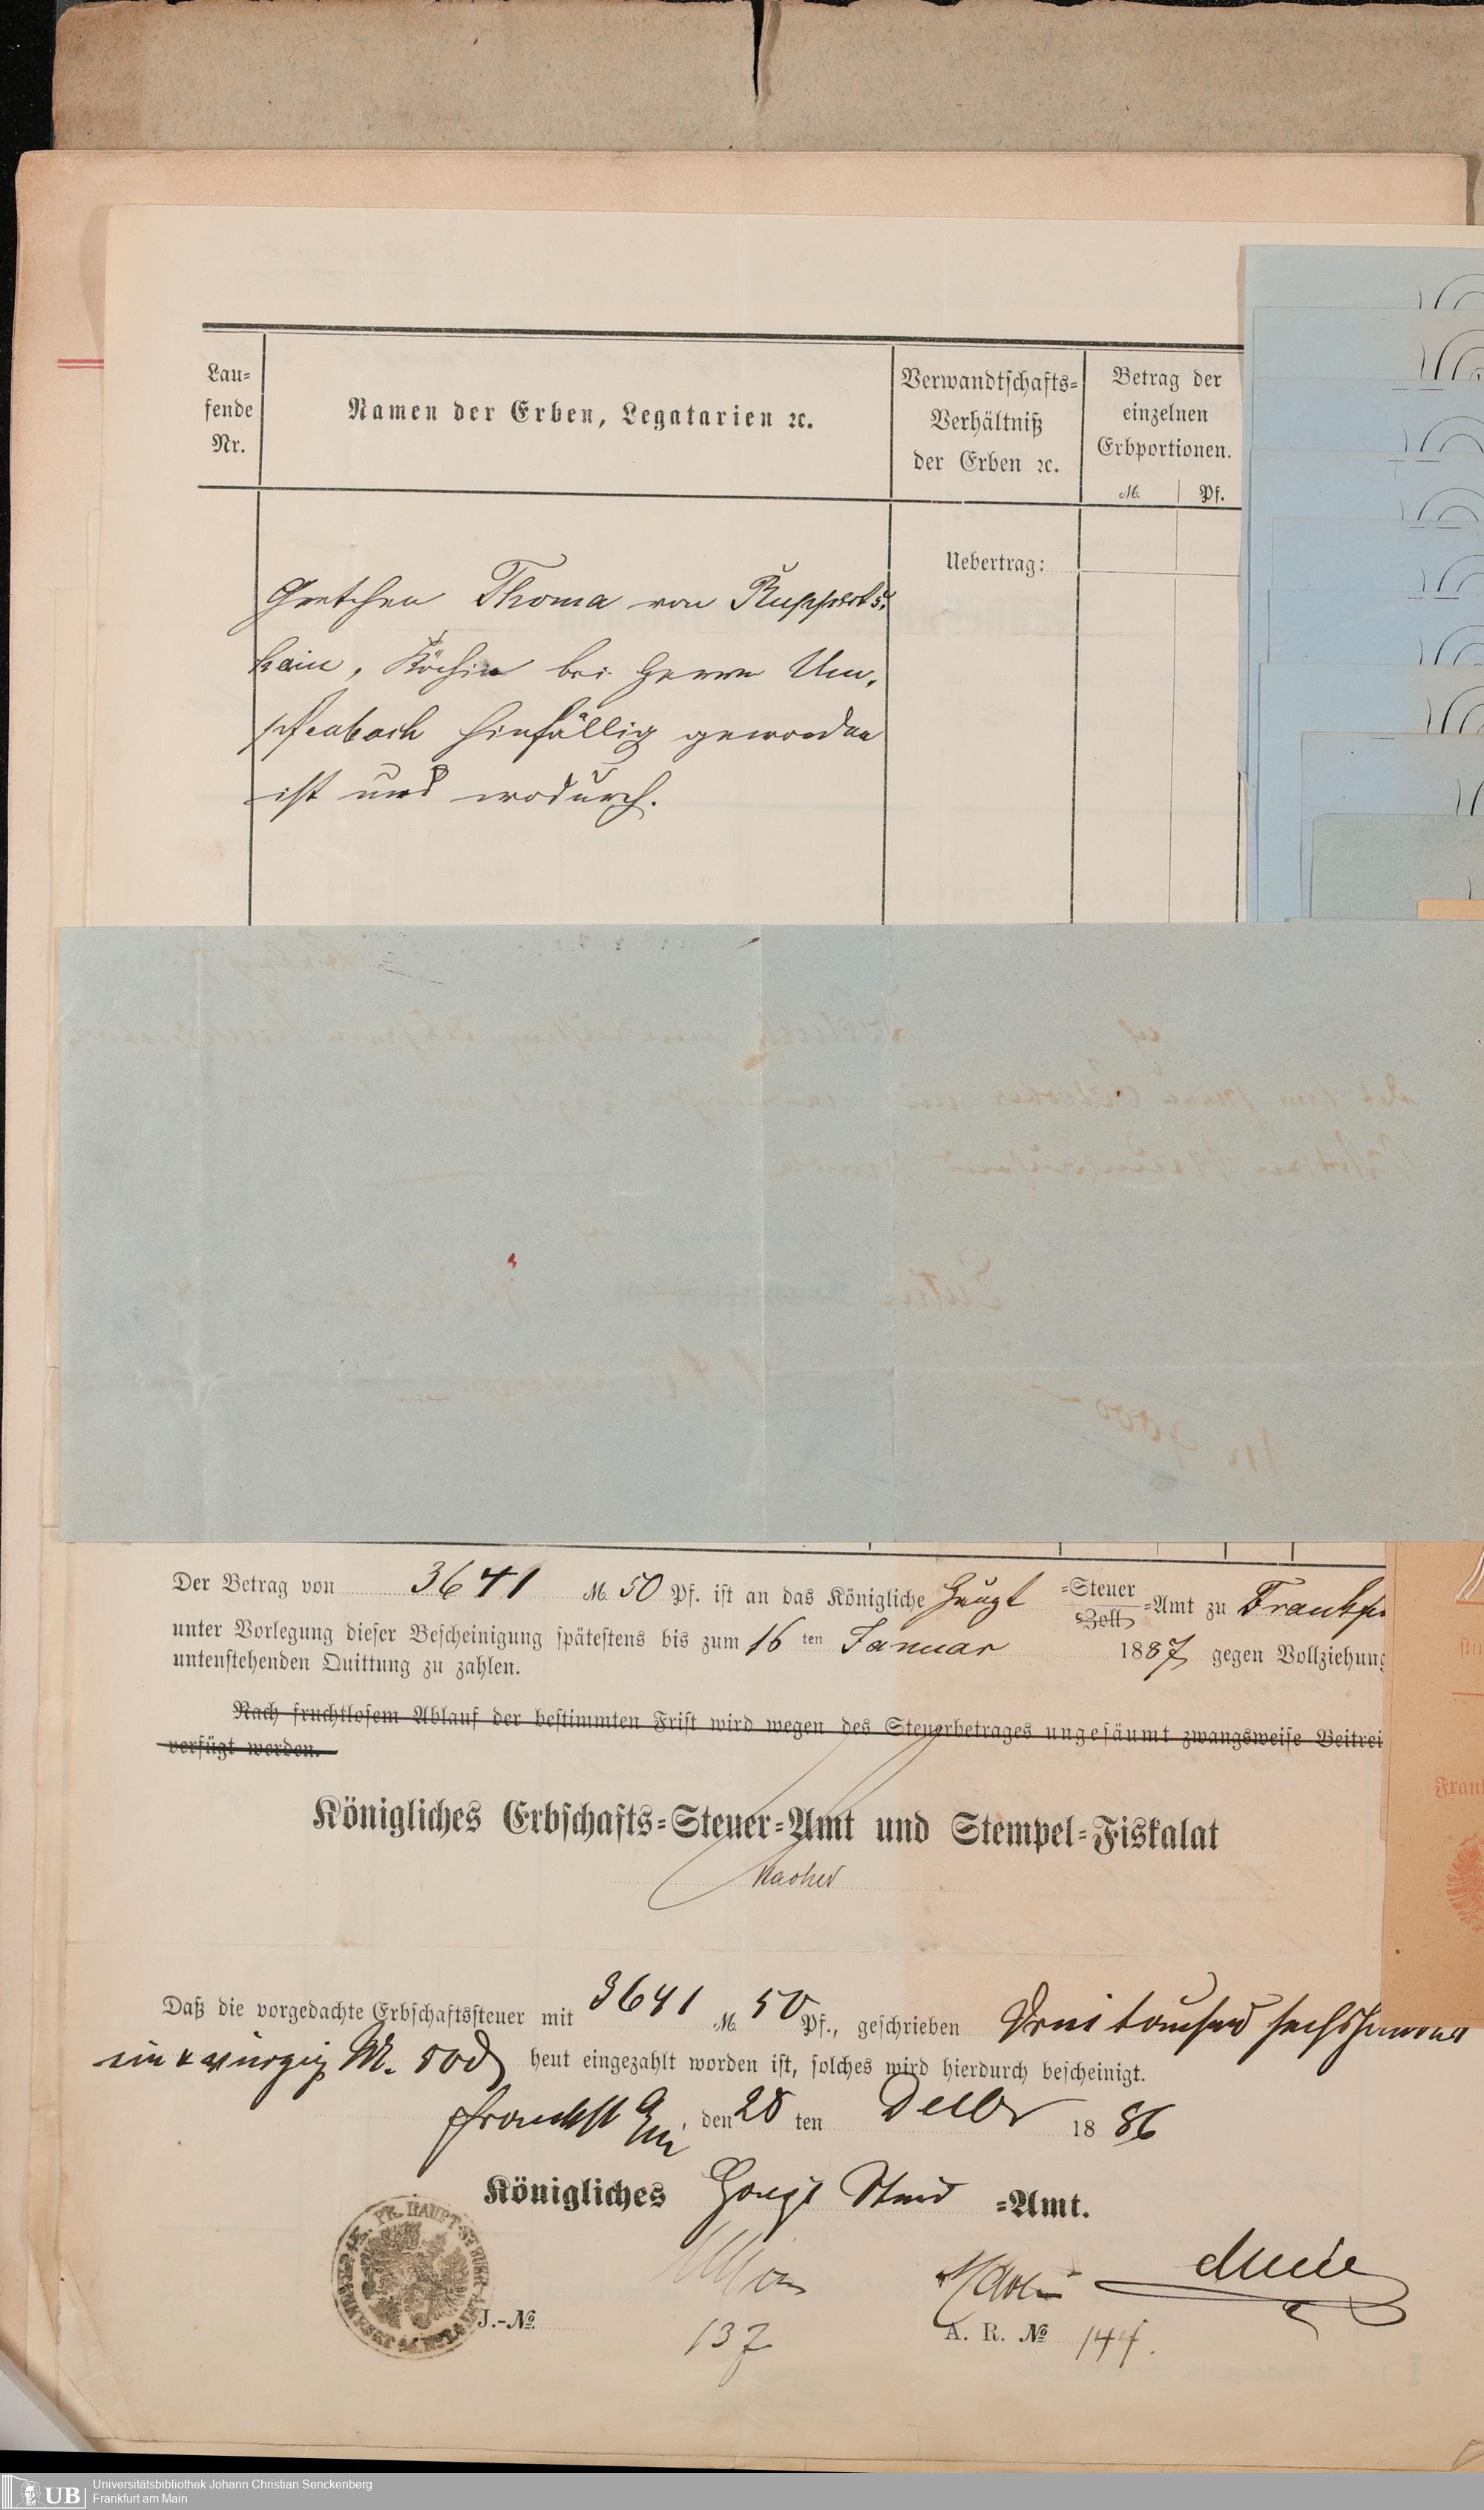 Lau-
fende
Nr.
Namen der Erben, Legatarien ꝛc.
Verwandtschafts-
Verhältniß
der Erben ꝛc.
Betrag der
einzelnen
Erbportionen.
M. Pf.
Uebertrag:
Gretchen Thoma von Rupperts-
hain, Köchin bei Herrn Um-
pfenbach hinfällig geworden
ist und wodurch.
Der Betrag von 3641 M. 50 Pf. ist an das Königliche Haupt =Steuer
Zoll =Amt zu Frankfu
unter Vorlegung dieser Bescheinigung spätestens bis zum 16 ten Januar 1887 gegen Vollziehung
untenstehenden Quittung zu zahlen.
Nach fruchtlosem Ablauf der bestimmten Frist wird wegen des Steuerbetrages ungesäumt zwangsweise Beitrei
verfügt werden.
Königliches Erbschafts-Steuer-Amt und Stempel-Fiskalat
Daß die vorgedachte Erbschaftssteuer mit 3641 M. 50 Pf., geschrieben Drei tausend sechshundert
ein & vierzig M. 50 d heut eingezahlt worden ist, solches wird hierdurch bescheinigt.
Frankft a/m, den 28 ten Decbr 1886
Königliches Haupt Steuer =Amt.
PR. HAUPT-STEUER-AMT
J.-№.
137
A. R. № 144.
Frank
UB
Universitätsbibliothek Johann Christian Senckenberg
Frankfurt am Main